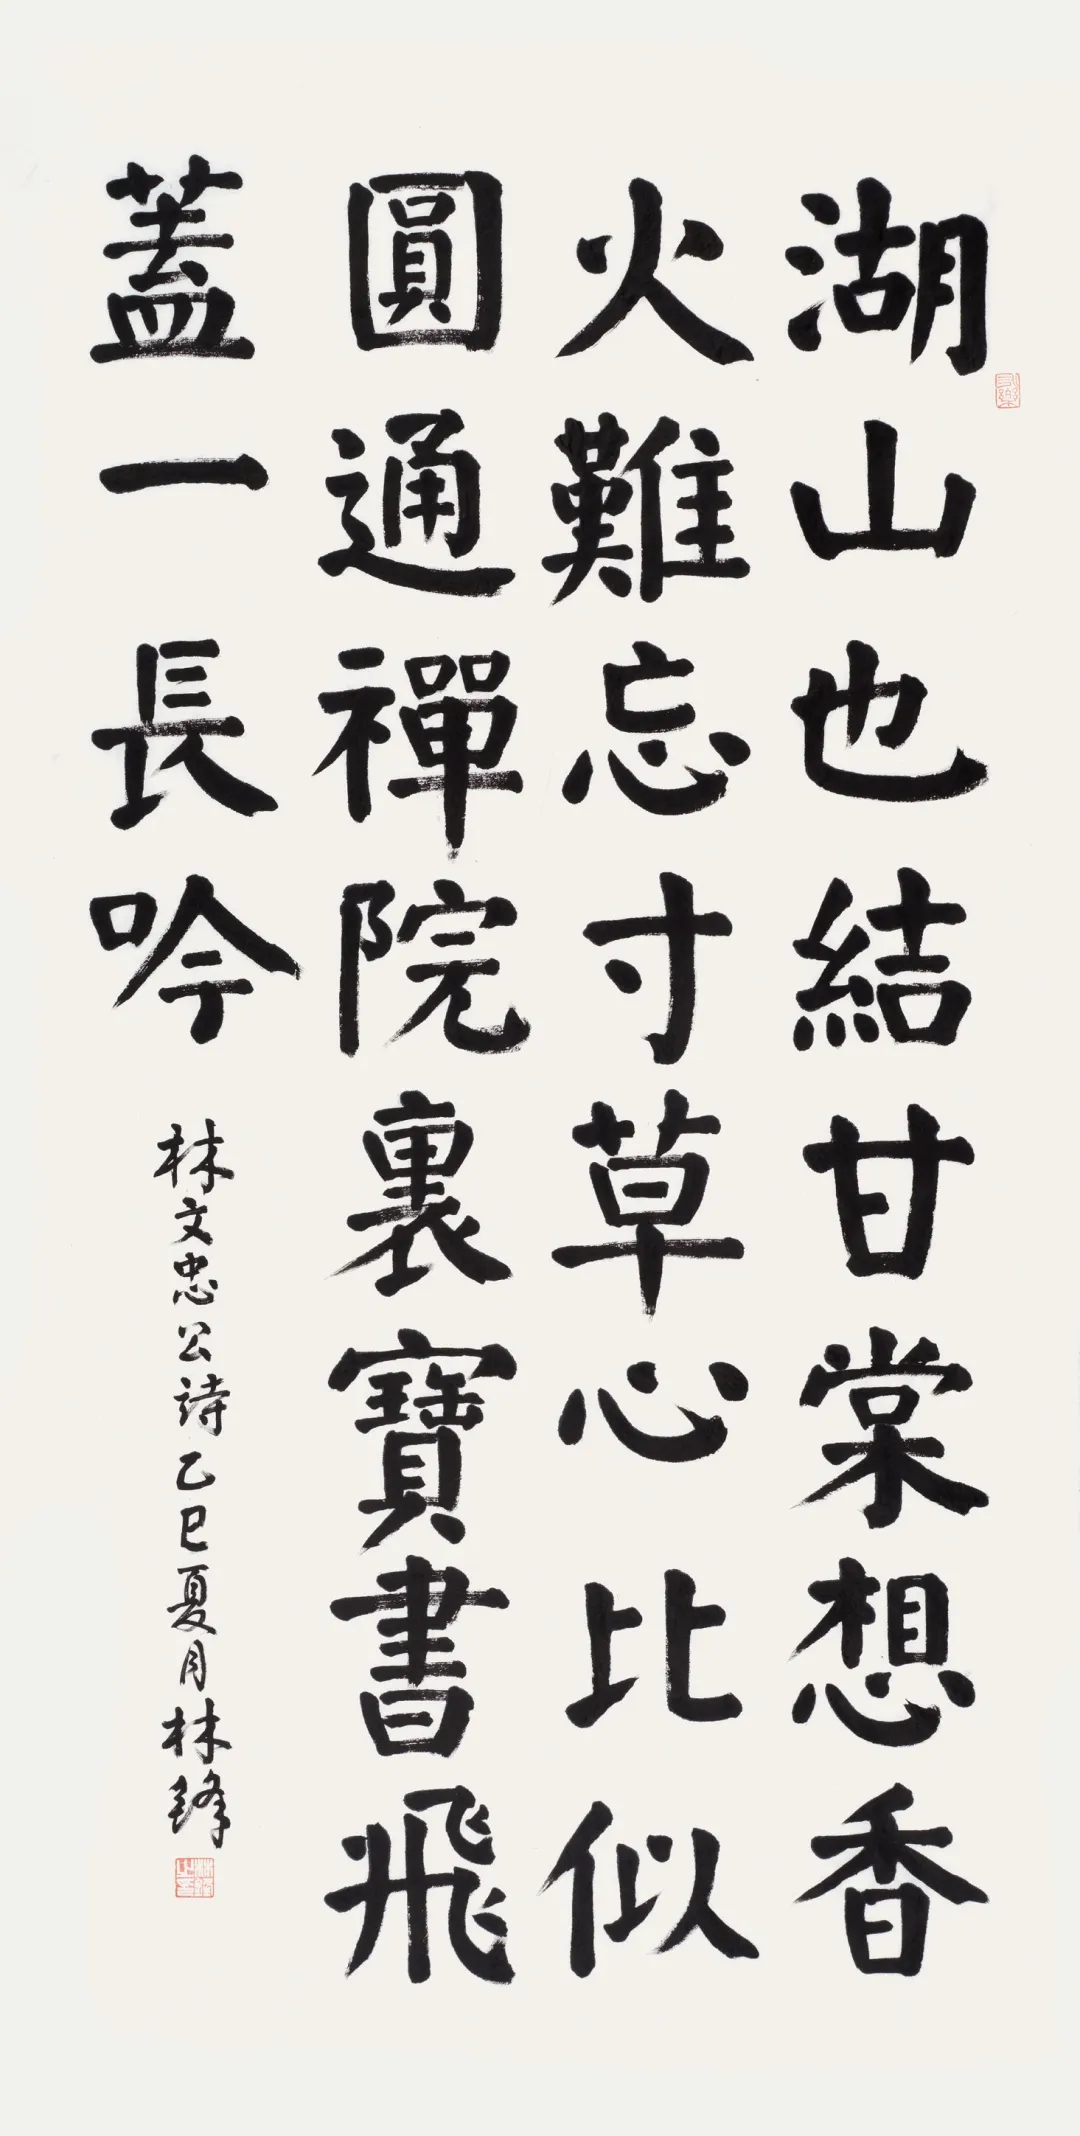 湖山也結甘棠想香
火難忘寸草心比似
圓通禪院裏寶書飛
蓋一長吟
林文忠公詩乙巳夏月林鋒